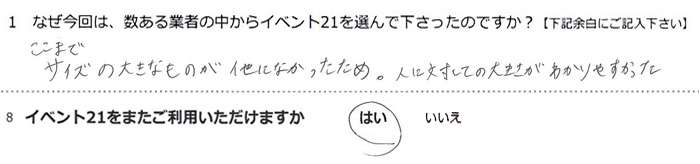 1 なぜ今回は、数ある業者の中からイベント21を選んで下さったのですか？【下記余白にご記入下さい】
ここまで
サイズの大きなものが他になかったため。人に対しての大きさがわかりやすかった
8 イベント21をまたご利用いただけますか はい いいえ